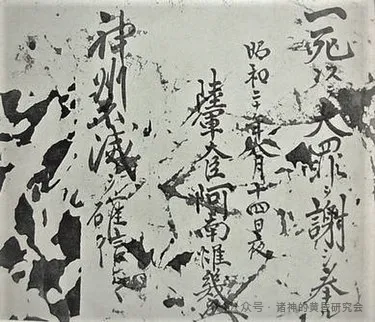 一死以大罪ヲ謝シ奉ル
昭和二十年八月十四日夜
陸軍大臣阿南惟幾
神州不滅ヲ確信シツヽ
公众号·诸神的黄昏研究会